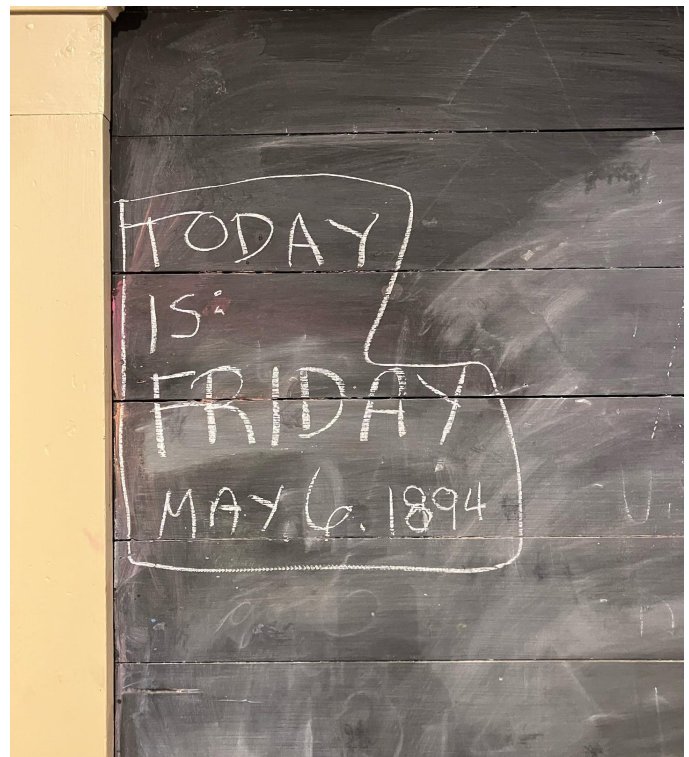 TODAY
IS:
FRIDAY
MAY 6. 1894